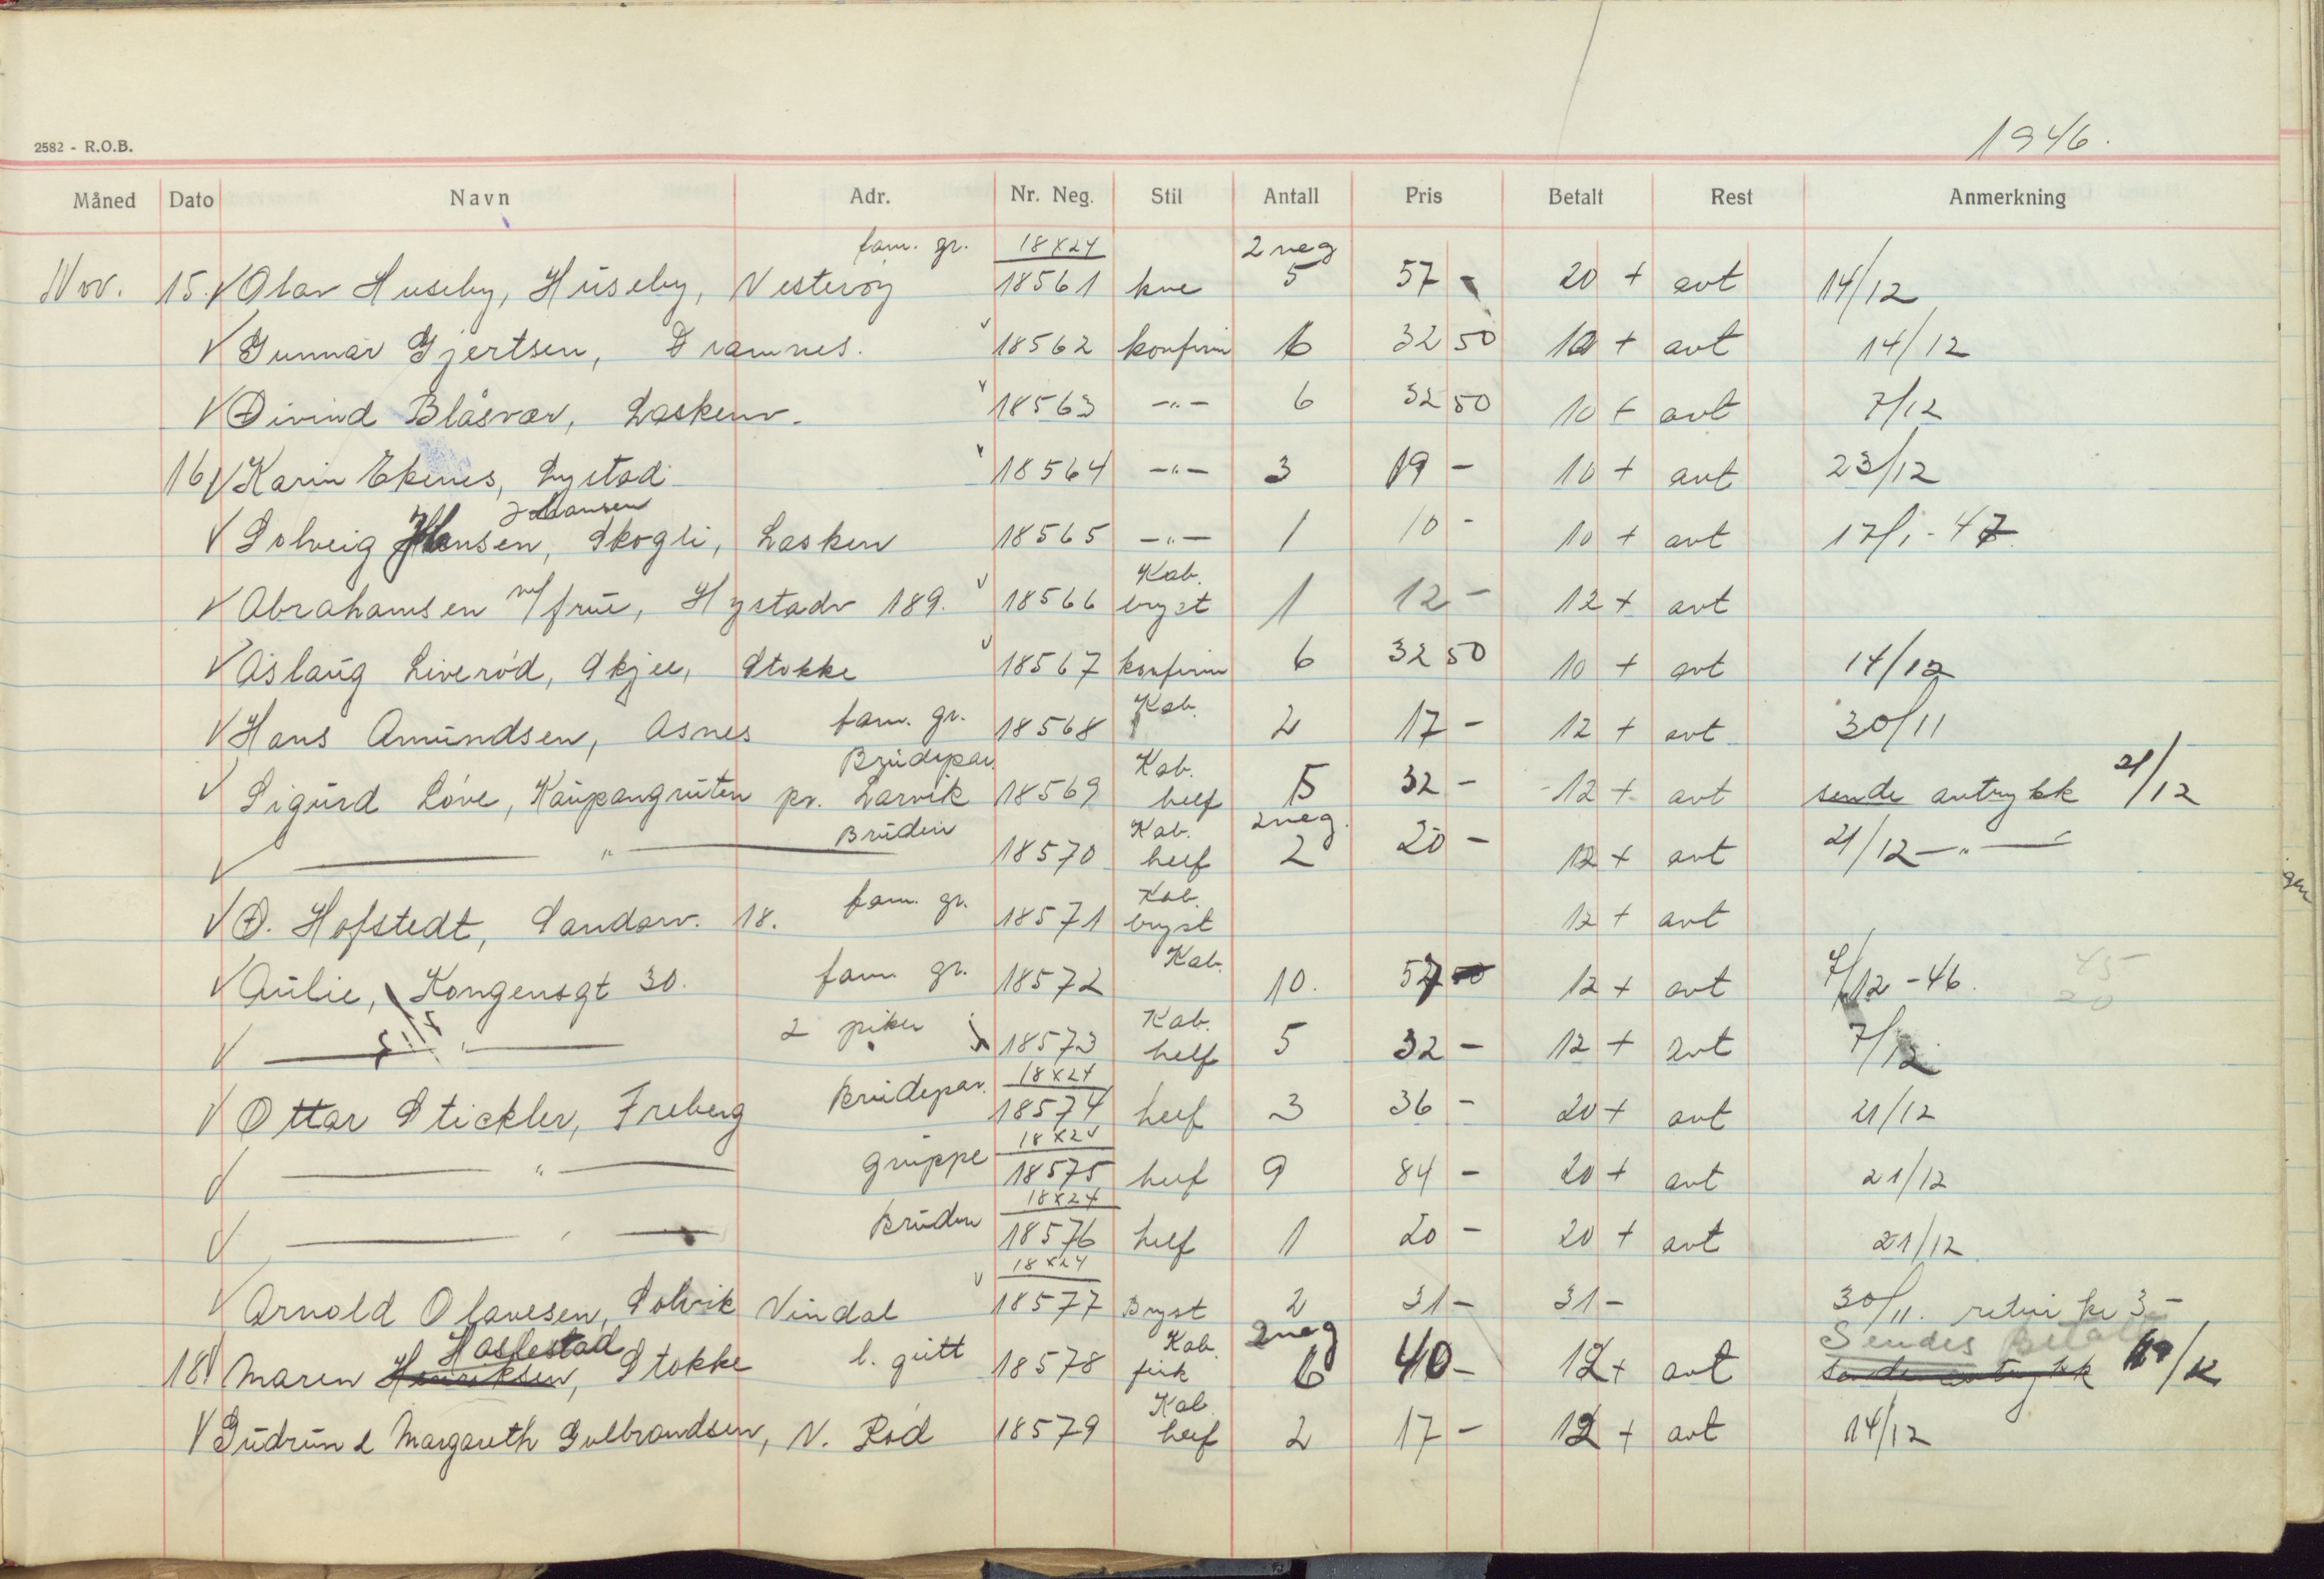 1946.
2582 - R.O.B.
Måned Dato Navn Adr. Nr. Neg. Stil Antall Pris Betalt Rest Anmerkning
fam. gr. 18x24 2 neg
Nov. 15. √ Olav Huseby, Huseby, Vesterøy 18561 kne 5 57 - 20 + avt 14/12
√ Gunnar Gjertsen, Framnes. √ 18562 konfirm 6 32 50 10 + avt 14/12
√ Øivind Blåsvær, Laskenv. √ 18563 -"- 6 32 50 10 + avt 7/12
16 √ Karin Ekenes, Lystad √ 18564 -"- 3 19 - 10 + avt 23/12
Johansen
√ Solveig Hansen, Skogli, Lasken 18565 -"- 1 10 - 10 + avt 17/1 - 47
Kab.
√ Abrahamsen m/frue, Hystadv 189. √ 18566 bryst 1 12 - 12 + avt
√ Aslaug Liverød, Skjee, Stokke √ 18567 konfirm 6 32 50 10 + avt 14/12
fam. gr. Kab.
√ Hans Amundsen, Asnes 18568 2 17 - 12 + avt 30/11
Brudepar. Kab.
√ Sigurd Løve, Kaupangruten pr. Larvik 18569 helf 5 32 - 12 + avt sende avtrykk 21/12
Bruden Kab. 2 neg.
√ — " — 18570 helf 2 20 - 12 + avt 21/12 — " —
fam. gr. Kab.
√ Ø. Hofstedt, Sandarv. 18. 18571 bryst 12 + avt
fam. gr. Kab.
√ Aulie, Kongensgt 30. 18572 10. 57 12 + avt 7/12 - 46. 45
20
2 piker Kab.
√ — " — 18573 helf 5 32 - 12 + avt 7/12
Brudepar. 18x24
√ Ottar Stickler, Freberg 18574 helf 3 36 - 20 + avt 21/12
gruppe 18x24
√ — " — 18575 helf 9 84 - 20 + avt 21/12
Bruden 18x24
√ — " — 18576 helf 1 20 - 20 + avt 21/12
18x24
√ Arnold Olavesen, Solvik Vindal √ 18577 Bryst 2 31 - 31 - 30/11. retur kr 3 -
Haslestad l. gutt Kab. 2 neg Sendes Betalt
18 √ Maren Henriksen, Stokke 18578 6 40 - 12 + avt sende avtrykk /12
Kab.
√ Gudrun & Margareth Gulbrandsen, N. Rød 18579 helf 2 17 - 12 + avt 14/12